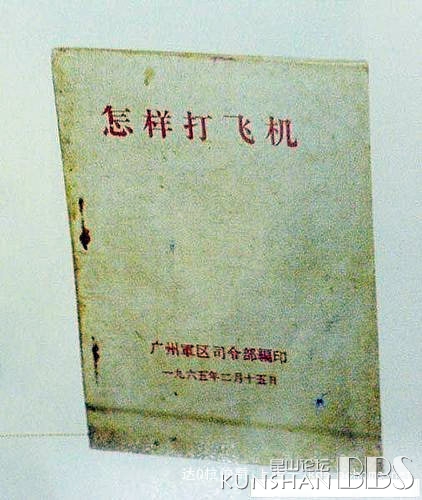 怎样打飞机
广州軍区司令部編印
一九六五年二月十五日
昆山论坛
KUNSHAN BBS